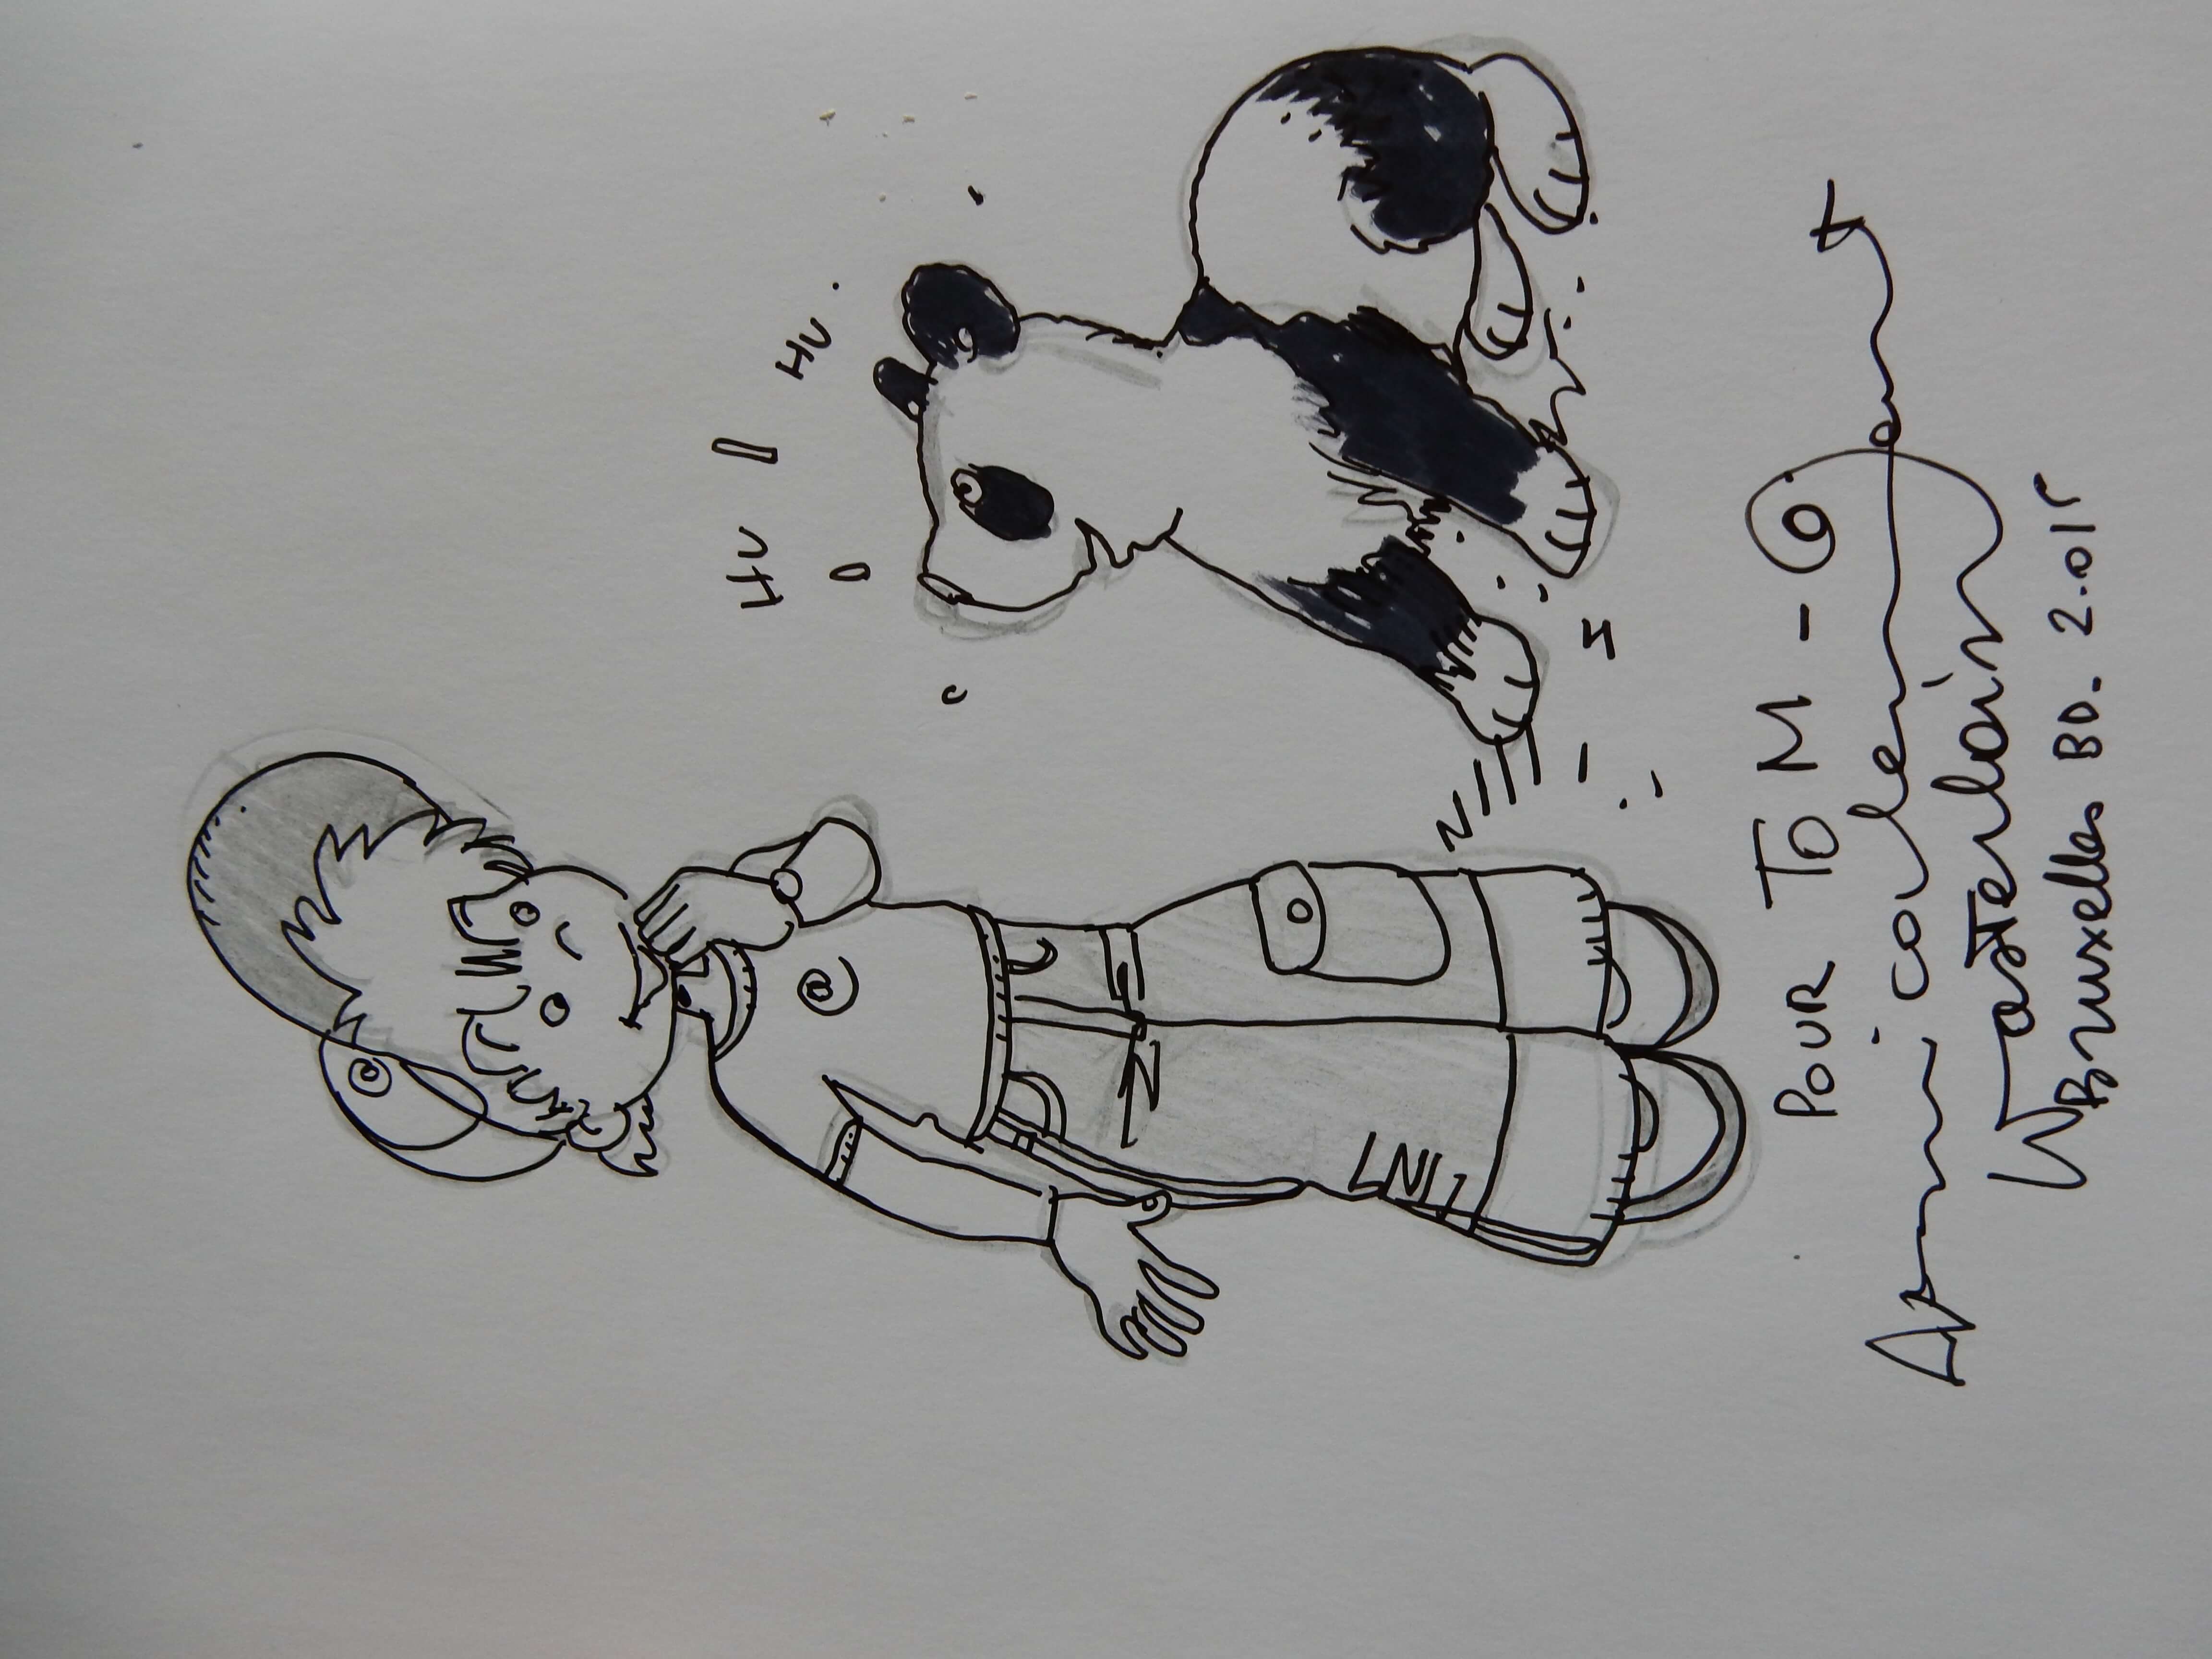 @
@
HU HU.
POUR TOM -
Amicalement
Wasterlain
Bruxelles BD. 2.015